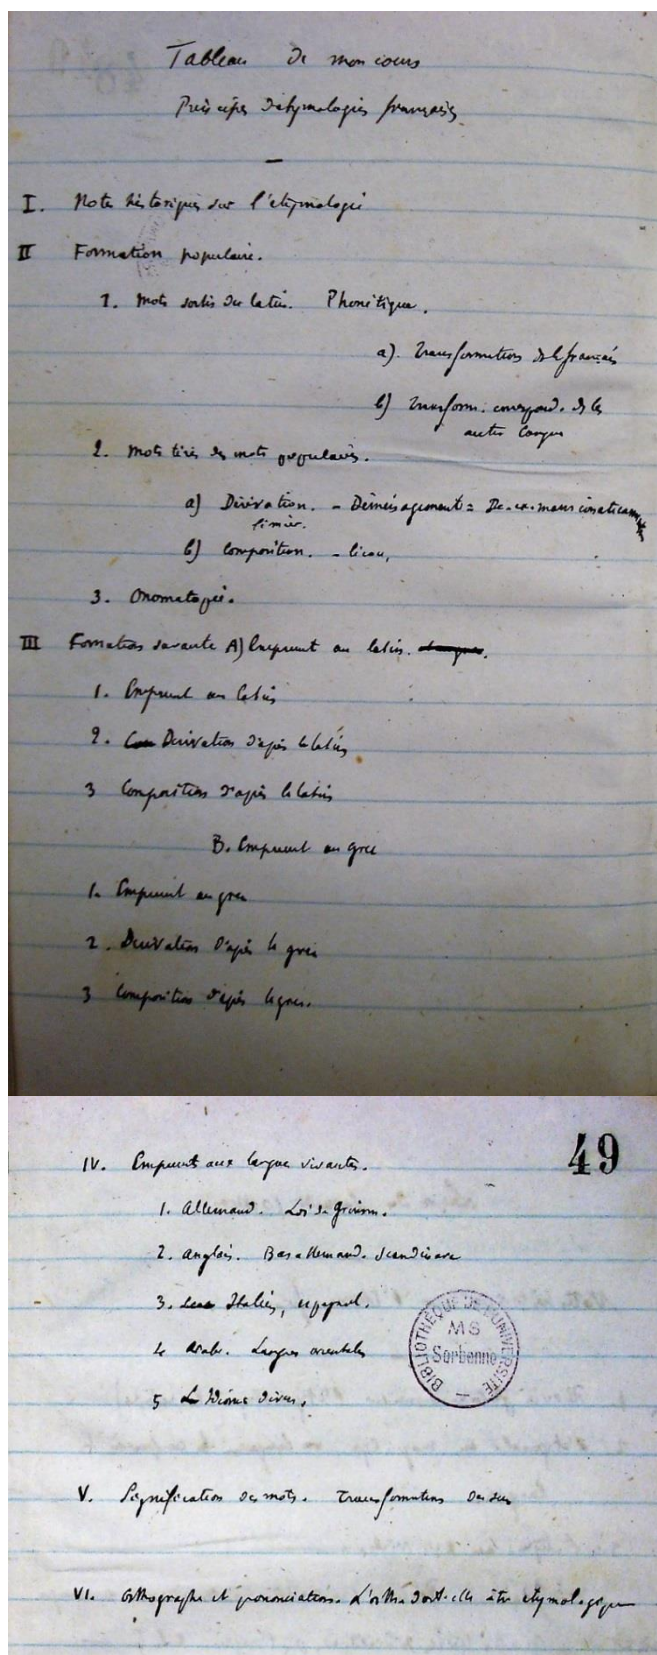 Tableau de mon cours
Principes d'étymologie française
I. Notes historiques sur l'étymologie
II Formation populaire.
1. Mots sortis du latin. Phonétique.
a). Transformations de le français
b) Transform. correspond. ds les
autres langues
2. Mots tirés des mots populaires.
a) Dérivation. - Déménagement = De-ex-mansionaticam
limier.
b) Composition. - licou,
3. Onomatopée.
III Formation savante A) Emprunt au latin.
1. Emprunt au latin
2. Derivation d'après le latin
3 Composition d'après le latin
B. Emprunt au grec
1. Emprunt au grec
2. Derivation d'après le grec
3 Composition d'après le grec.
49
IV. Emprunts aux langues vivantes.
1. Allemand. Loi de Grimm.
2. Anglais. Bas allemand. Scandinave
3. Italien, espagnol.
4 Arabe. Langues orientales
5 Idiomes divers.
BIBLIOTHÈQUE DE L'UNIVERSITÉ
MS
Sorbonne
V. Signification des mots. Transformations des sens
VI. Orthographe et prononciation. L'orth. doit-elle être etymologique